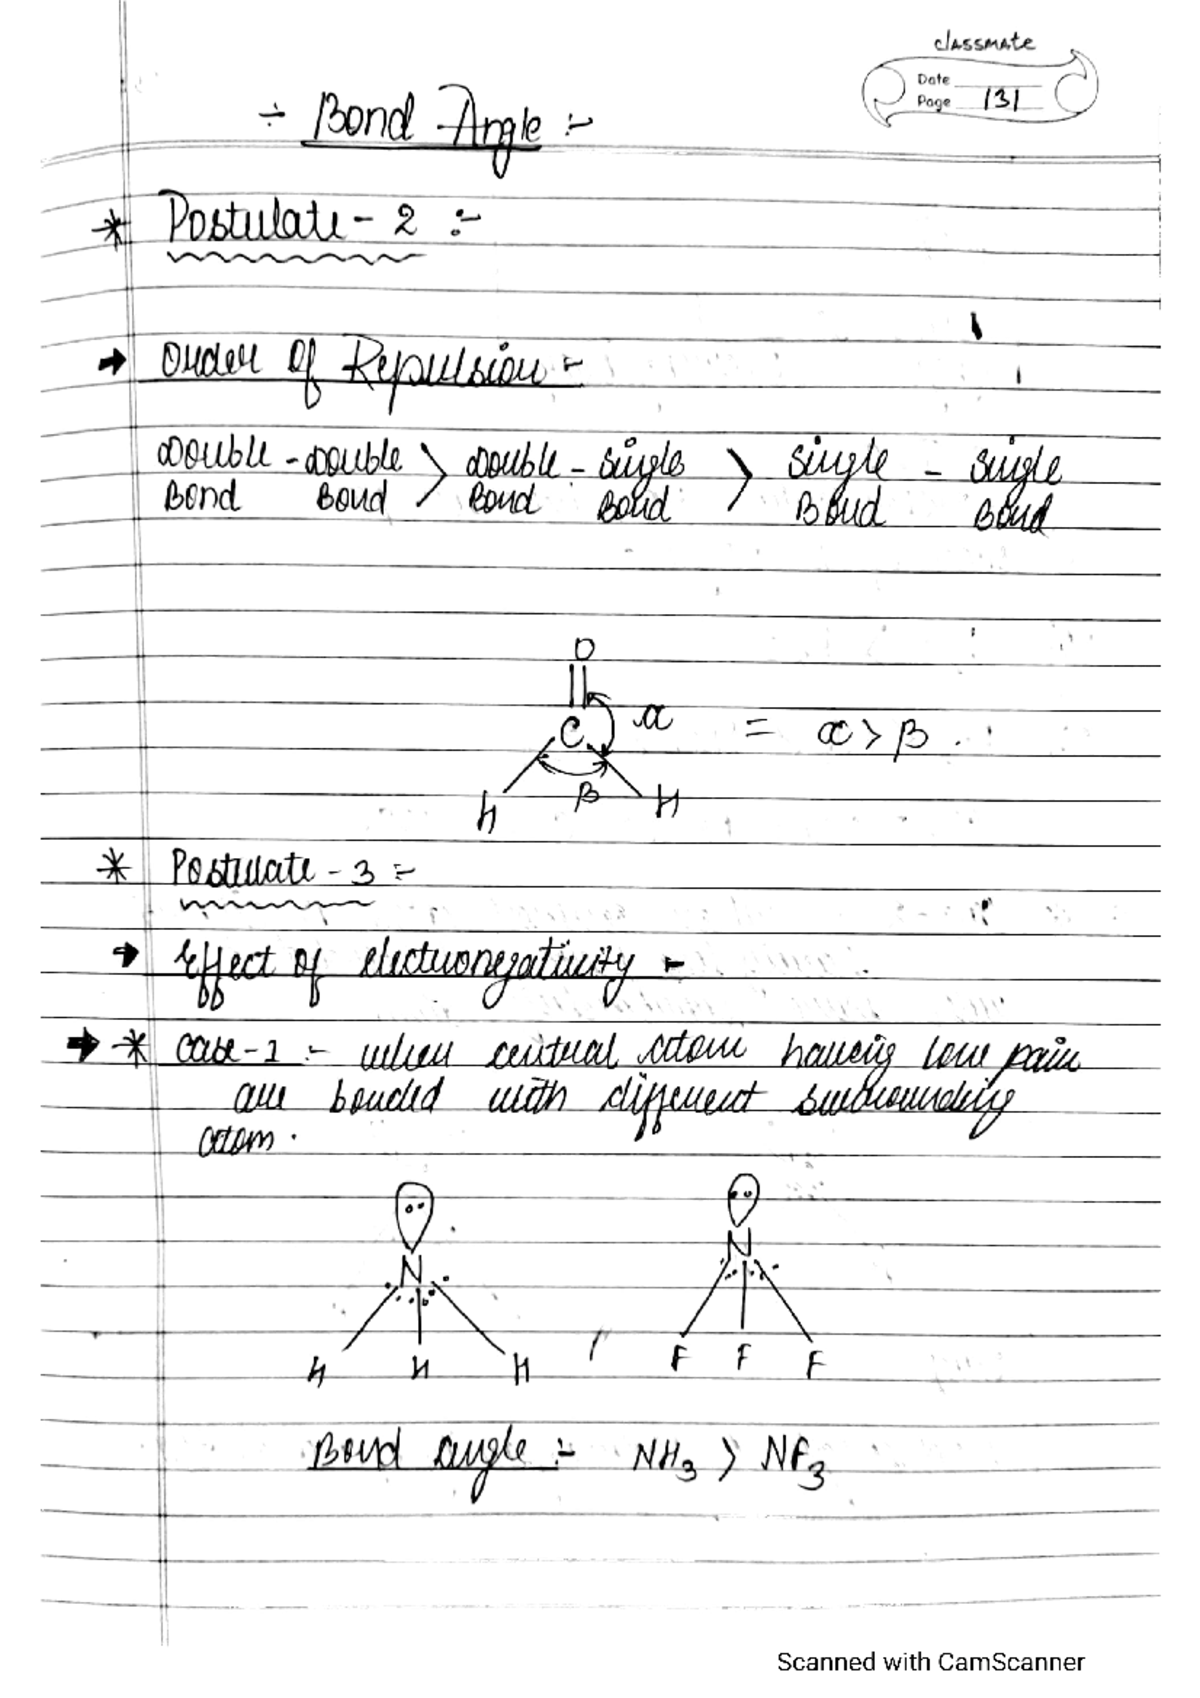 classmate
Date
Page 131
÷ Bond Angle :-
* Postulate - 2 :-
→ Order of Repulsion :-
Double - Double > Double - Single > Single - Single
Bond Bond Bond Bond Bond Bond
O
C α = α > β .
H β H
* Postulate - 3 :-
→ Effect of electronegativity :-
→ * Case - 1 :- when central atom having lone pair
are bonded with different surrounding
atom.
N N
H H H F F F
Bond angle :- NH3 > NF3
Scanned with CamScanner